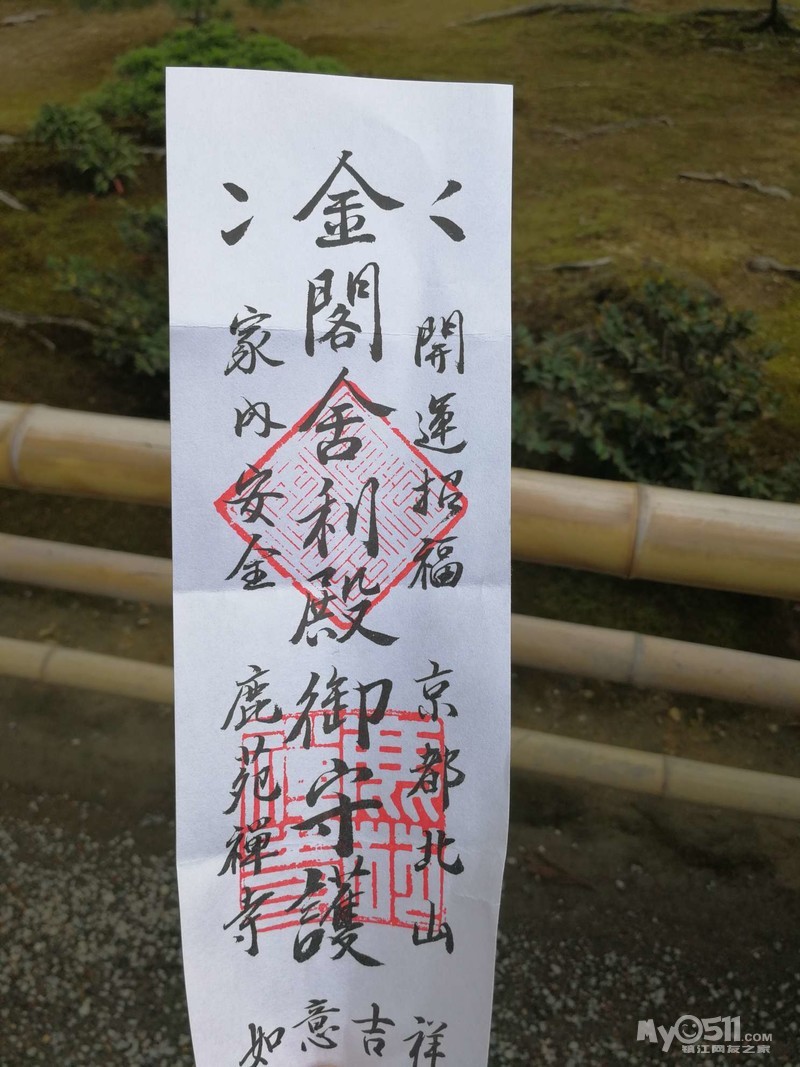 開運招福 京都北山
金閣舍利殿御守護
家内安全 鹿苑禪寺
如意吉祥
My0511.COM
镇江网友之家